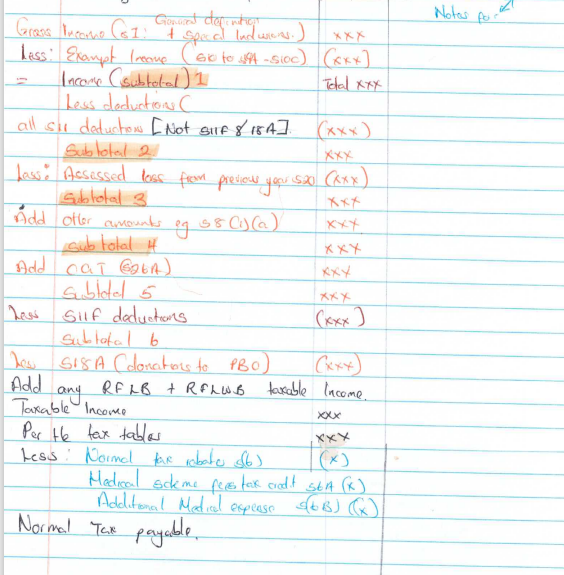 Notes for
General definition
Gross Income (s1: + Special Inclusions.) xxx
Less: Exempt Income (s10 to - s10C) (xxx]
= Income (subtotal) 1 Total xxx
Less deductions (
all s11 deductions [Not s11F & 18A]. (xxx)
Subtotal 2 xxx
Less: Assessed loss from previous year s20 (xxx)
Subtotal 3 xxx
Add other amounts eg s8(1)(a) xxx
subtotal 4 xxx
Add CGT (s26A) xxx
Subtotal 5 xxx
Less S11F deductions (xxx]
Subtotal 6
Less S18A (donations to PBO) (xxx)
Add any RFLB + RFLWB taxable Income.
Taxable Income xxx
Per the tax tables xxx
Less: Normal tax rebate s6) (x)
Medical scheme fees tax credit s6A (x)
Additional Medical expense s6B) (x)
Normal Tax payable.